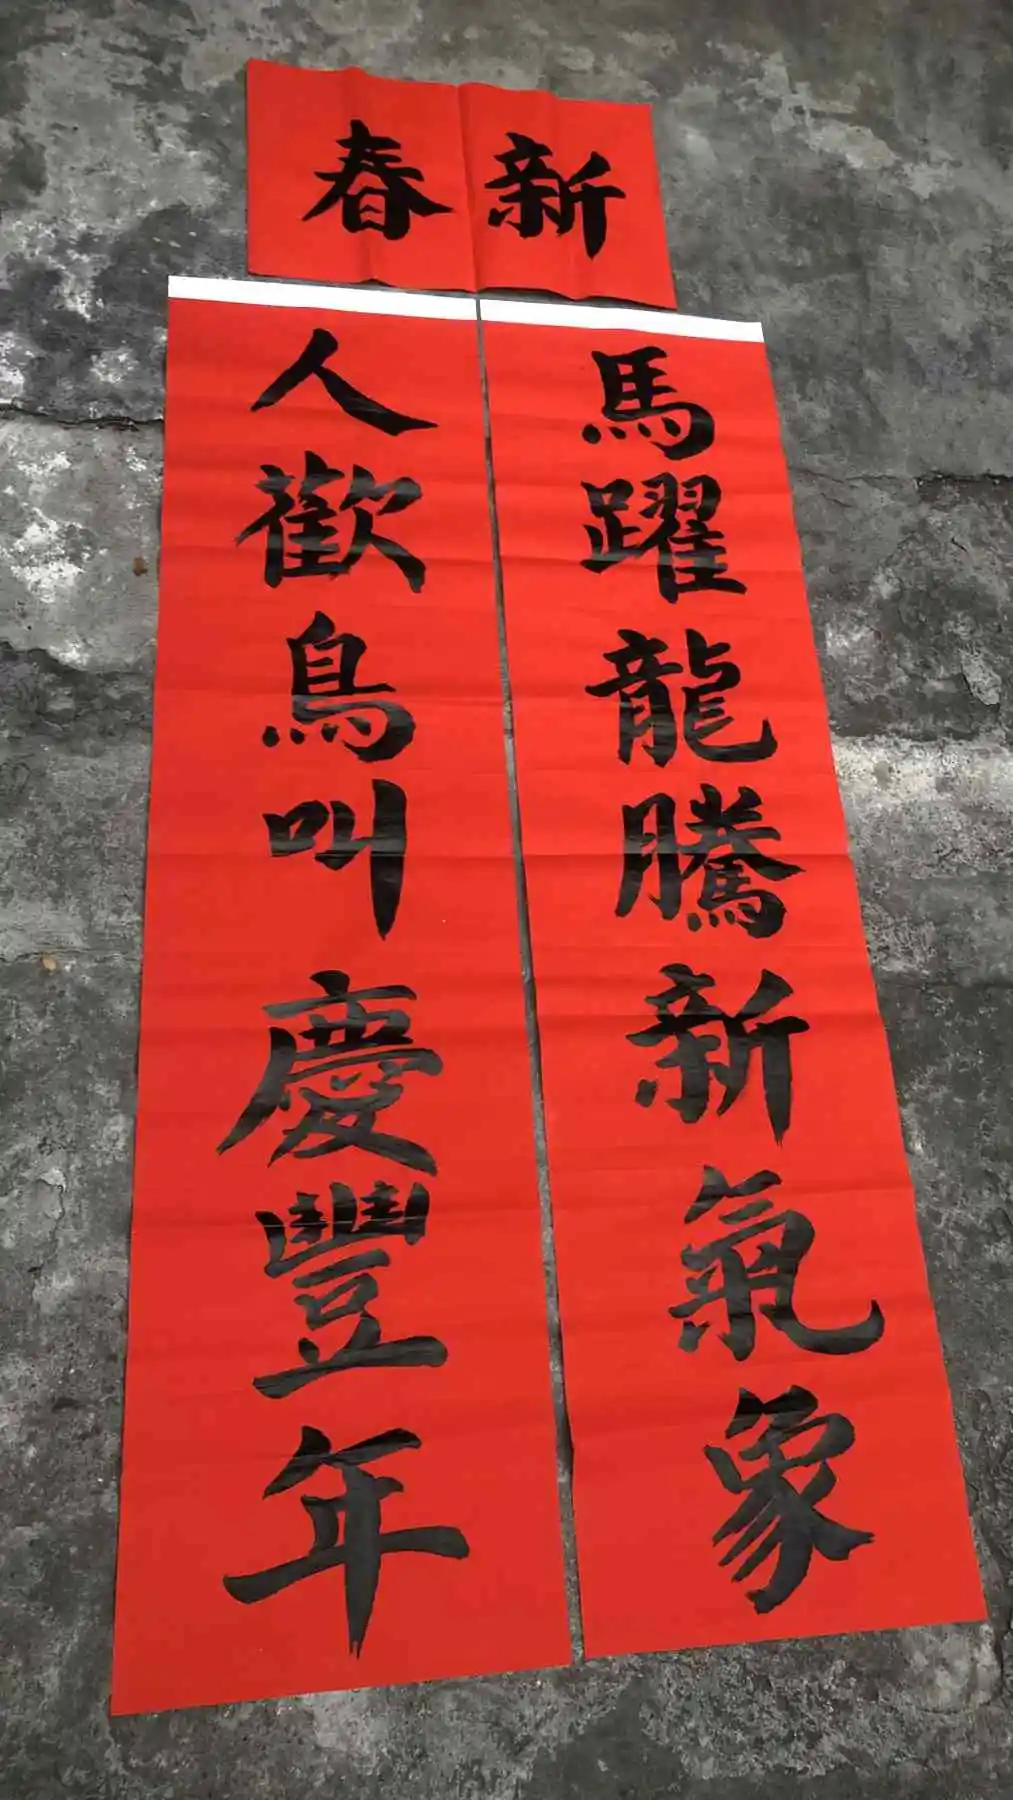 新春
馬躍龍騰新氣象
人歡鳥叫慶豐年